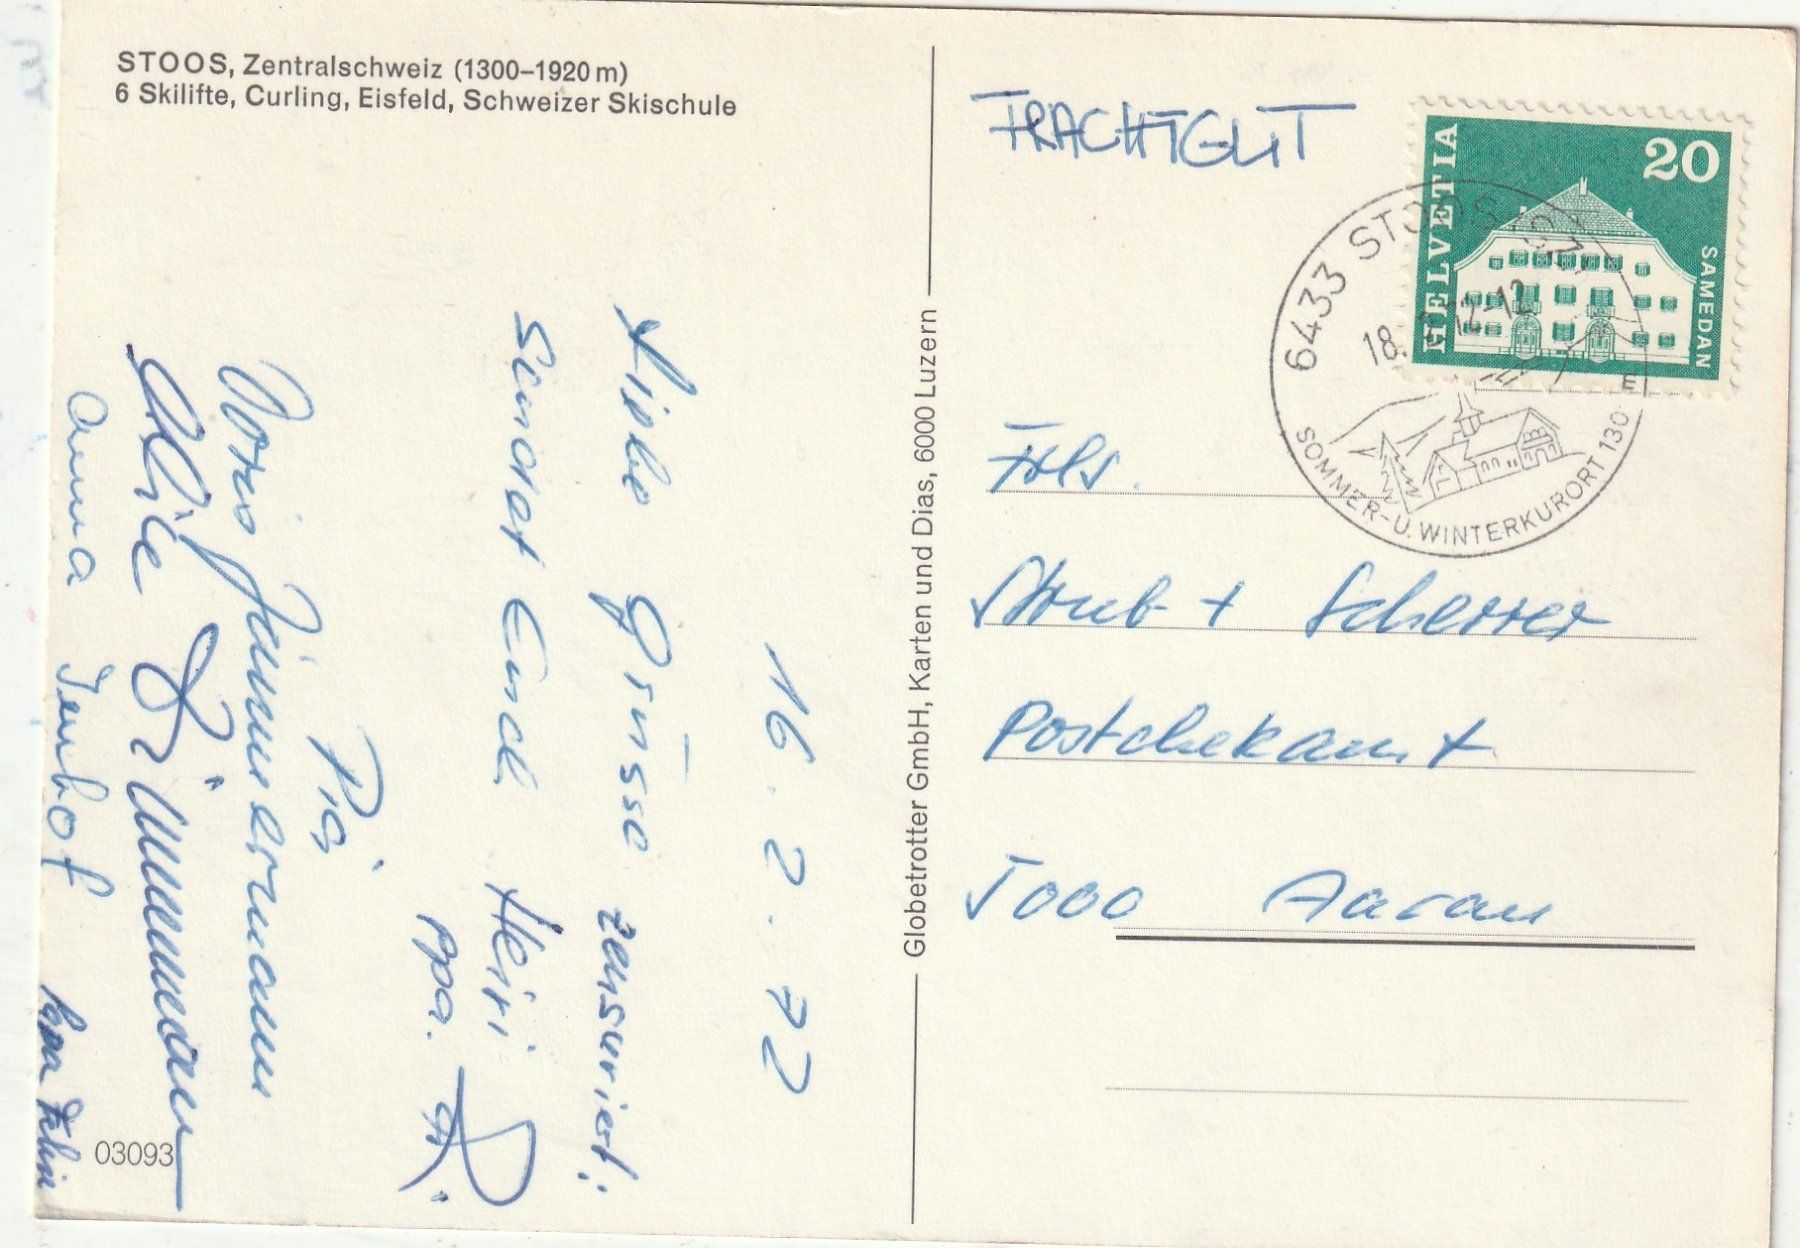 STOOS, Zentralschweiz (1300–1920 m)
6 Skilifte, Curling, Eisfeld, Schweizer Skischule
16. 2. 72
Liebe Grüsse zensuriert!
sendet Euch Heiri
ppa.
Pia
Doris Zimmermann
Anna Imhof
03093
Globetrotter GmbH, Karten und Dias, 6000 Luzern
FRACHTGUT
HELVETIA
20
SAMEDAN
6433 STOOS
18. 72-12
SOMMER-U. WINTERKURORT 130
Frls.
Strub + Scherrer
Postchekamt
5000 Aarau